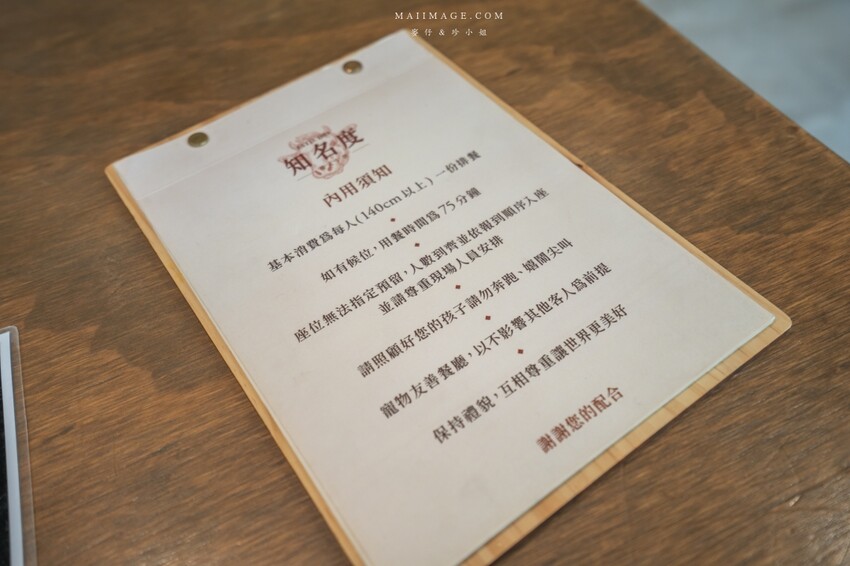 MAIIMAGE.COM
麥仔&珍小姐
知名度
內用須知
基本消費為每人(140cm以上)一份排餐
如有候位,用餐時間為75分鐘
座位無法指定預留,人數到齊並依報到順序入座
並請尊重現場人員安排
請照顧好您的孩子請勿奔跑、嬉鬧尖叫
寵物友善餐廳,以不影響其他客人為前提
保持禮貌,互相尊重讓世界更美好
謝謝您的配合